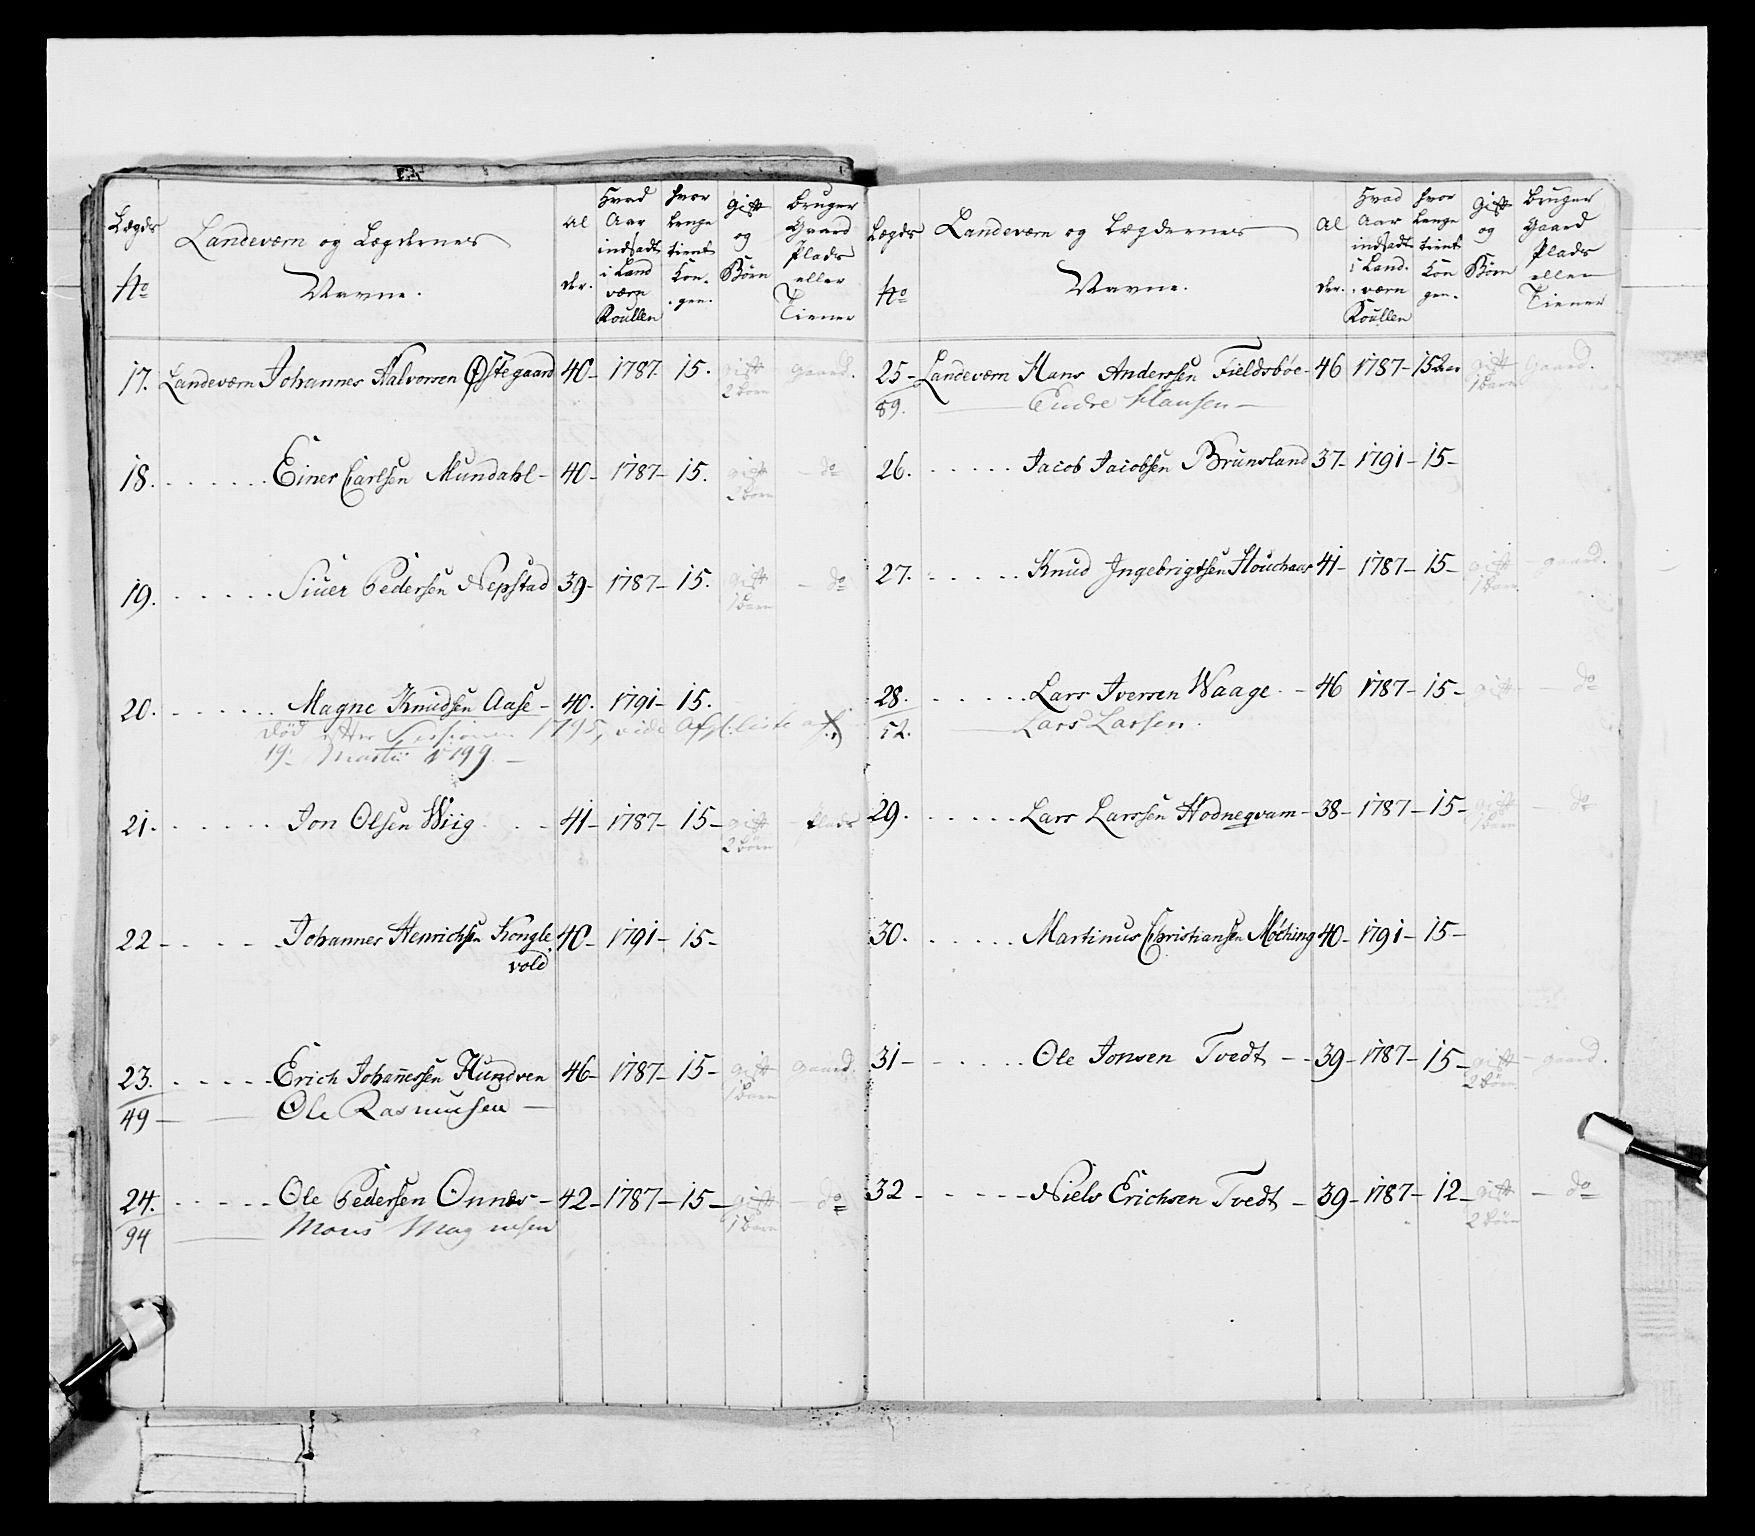 Lægds No
Landeværn og Lægdernes Navne.
Al der.
Hvad Aar indsadt i Land værn Roullen
hvor lenge tient Kon- gen.
Gift og Børn
Bruger Gaard Plads eller Tiener
17. Landeværn Johannes Halvorsen Østegaard 40- 1787 15. gift 2 børn gaard.
18. Einer Carlsen Mundahl- 40- 1787- 15. gift 2 børn - do
19. Siuer Pedersen Nepstad 39- 1787- 15. gift 1 barn - do
20. Magne Knudsen Aase- 40. 1791- 15.
død efter Sessionen 1795, vide Afg: liste af
19. Martii 1799
21. Jon Olsen Wiig - 41- 1787- 15- gift 2 børn - plads
22- Johannes Henrichsen Kongle 40- 1791- 15-
vold
23. Erich Johannessen Hundven 46- 1787- 15- gift 1 barn gaard.
49 - Ole Rasmusen -
24. Ole Pedersen Onnes- 42- 1787- 15- gift 1 barn - do
94 Mons Magnusen
Lægds No
Landeværn og Lægdernes Navne.
Al der.
Hvad Aar indsadt i Land. værn Roullen
hvor lenge tient Kon gen.
Gift og Børn
Bruger Gaard Plads eller Tiener
25- Landeværn Hans Anderssen Fieldsbøe- 46 1787- 15 Aar gift 1 barn Gaard.
89. Endre Hansen-
26. Jacob Jacobsen Brunsland 37- 1791- 15-
27. Knud Ingebrigtsen Houchaas 41- 1787- 15- gift 1 barn - gaard.
28. Lars Iversen Waage - 46 1787- 15- gift - do
52. Lars Larsen.
29. Lars Larssen Hodneqvam- 38- 1787- 15- gift 1 barn - do
30. Martinus Christiansen Møching 40- 1791- 15-
31- Ole Jonsen Tvedt - 39- 1787- 15- gift 2 børn - gaard.
32 - Niels Erichsen Tvedt - 39- 1787- 12- gift 2 børn - do